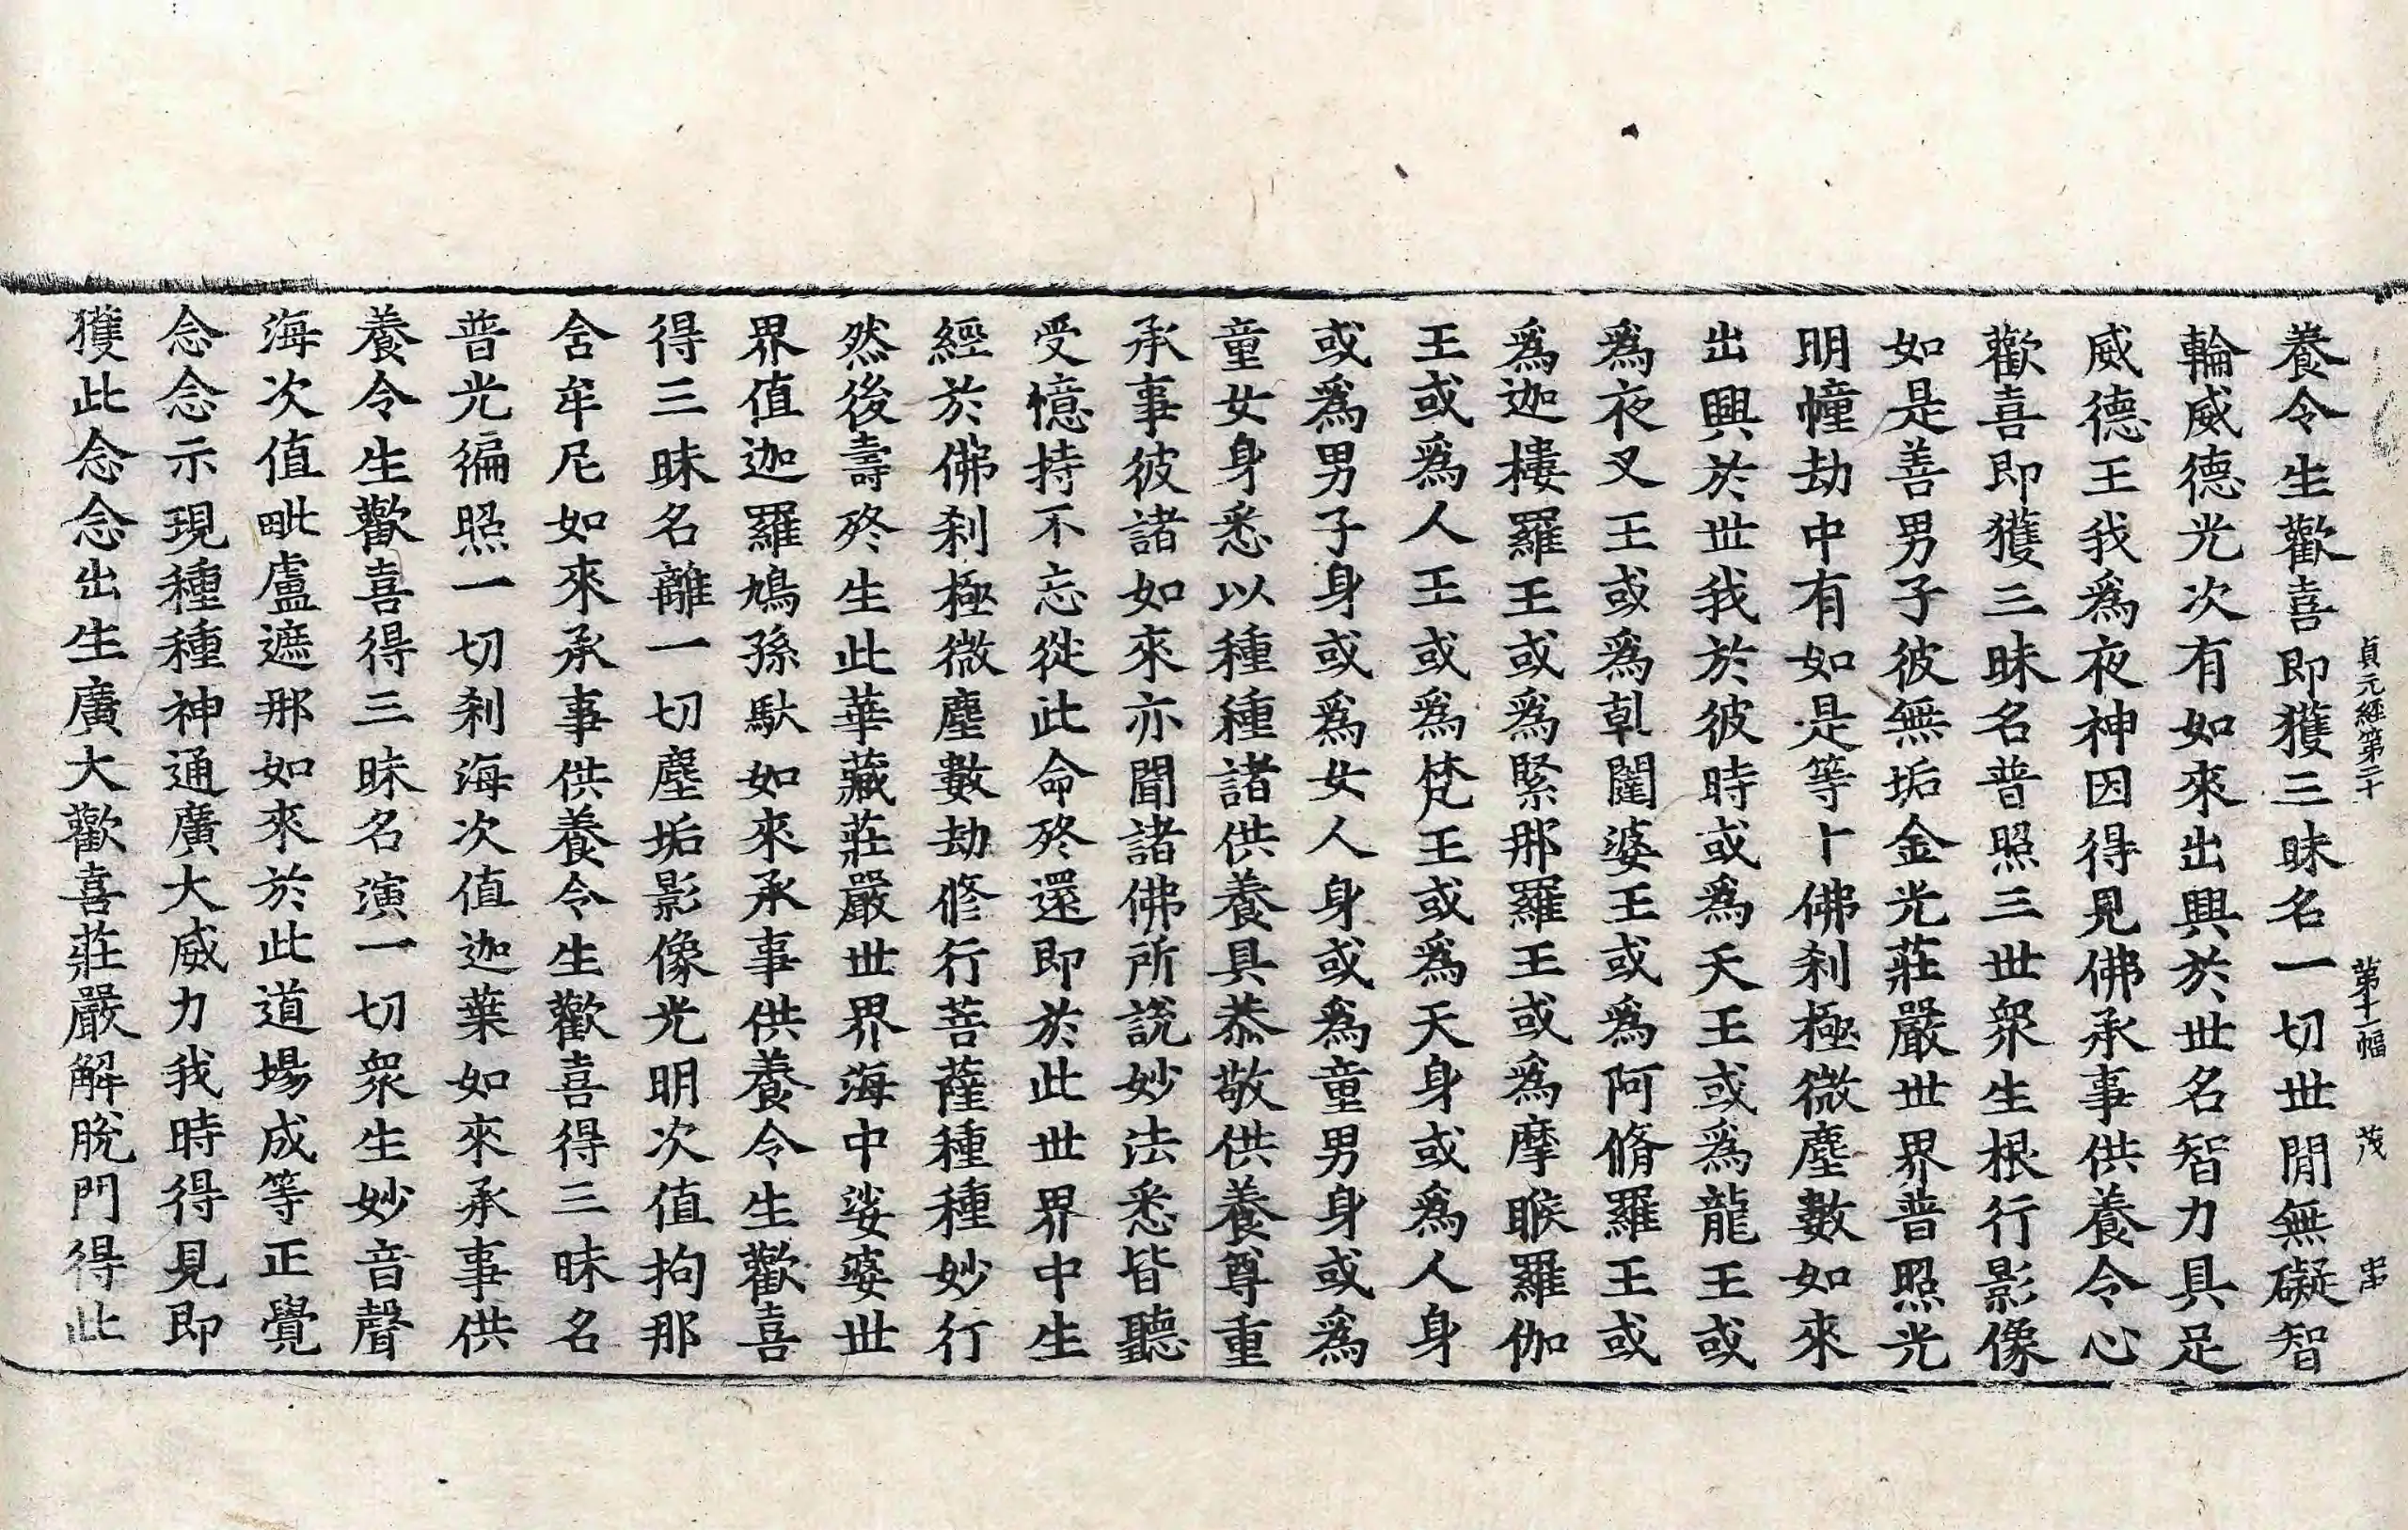 貞元經第二十 第十二幅 茂 忠
養令生歡喜即獲三昧名一切世閒無礙智
輪威德光次有如來出興於世名智力具足
威德王我爲夜神因得見佛承事供養令心
歡喜即獲三昧名普照三世衆生根行影像
如是善男子彼無垢金光莊嚴世界普照光
明幢劫中有如是等十佛刹極微塵數如來
出興於世我於彼時或爲天王或爲龍王或
爲夜叉王或爲乹闥婆王或爲阿脩羅王或
爲迦樓羅王或爲緊那羅王或爲摩睺羅伽
王或爲人王或爲梵王或爲天身或爲人身
或爲男子身或爲女人身或爲童男身或爲
童女身悉以種種諸供養具恭敬供養尊重
承事彼諸如來亦聞諸佛所說妙法悉皆聽
受憶持不忘從此命終還即於此世界中生
經於佛刹極微塵數劫修行菩薩種種妙行
然後壽終生此華藏莊嚴世界海中娑婆世
界值迦羅鳩孫馱如來承事供養令生歡喜
得三昧名離一切塵垢影像光明次值拘那
舍牟尼如來承事供養令生歡喜得三昧名
普光徧照一切刹海次值迦葉如來承事供
養令生歡喜得三昧名演一切衆生妙音聲
海次值毗盧遮那如來於此道場成等正覺
念念示現種種神通廣大威力我時得見即
獲此念念出生廣大歡喜莊嚴解脫門得此